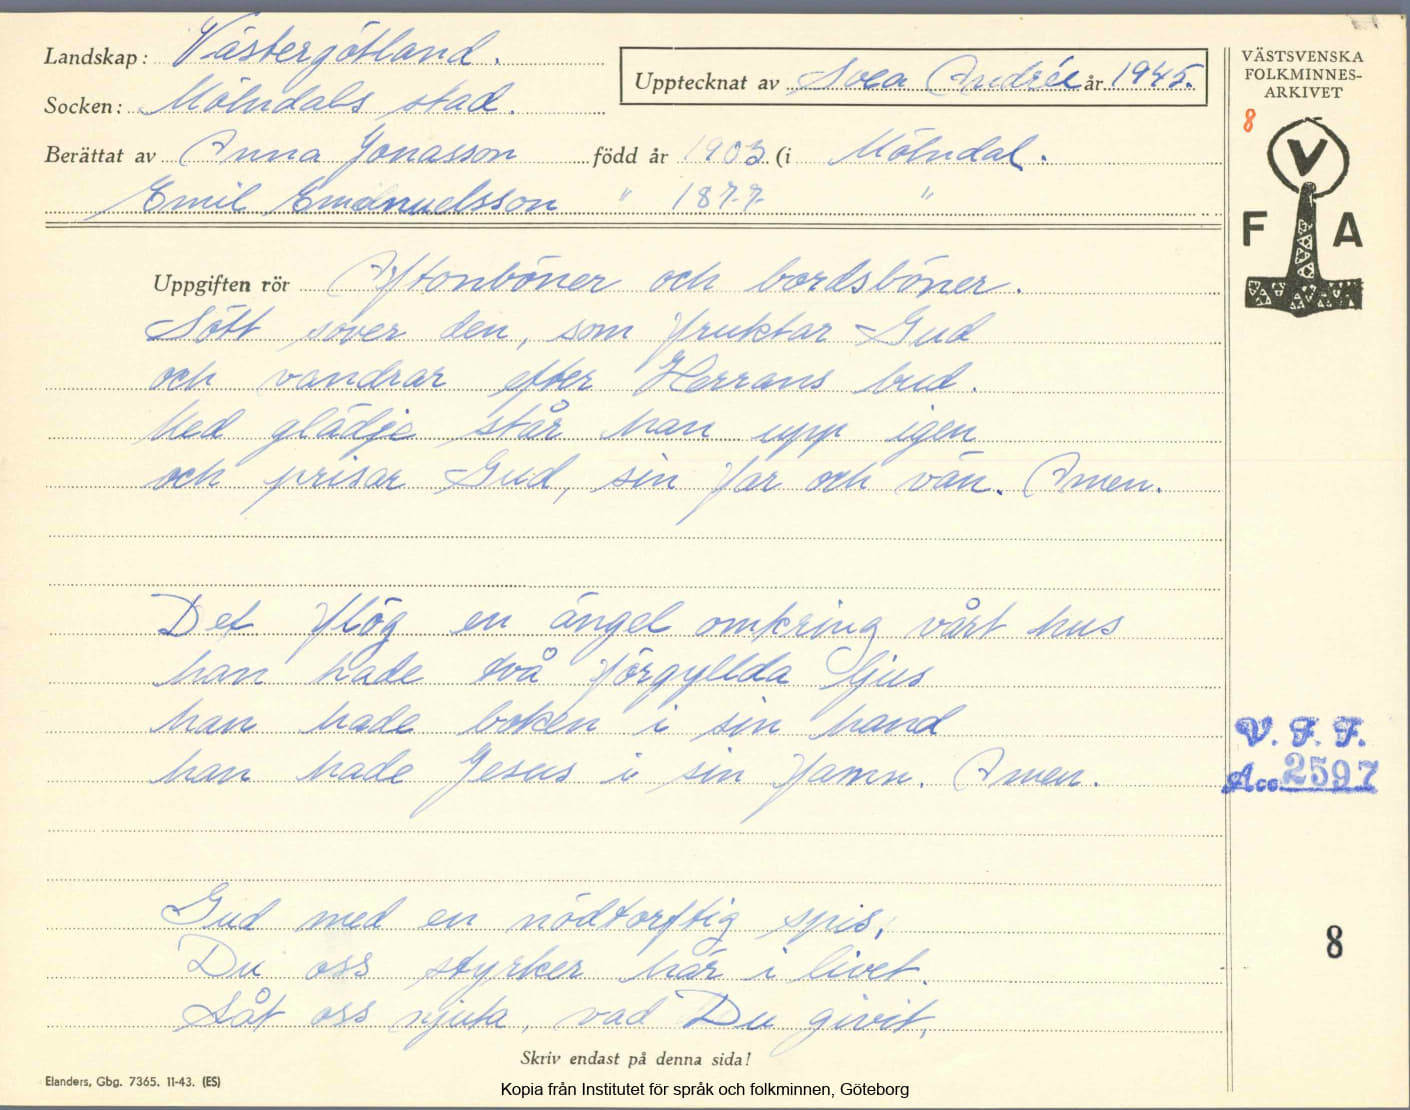 Landskap: Västergötland.
Socken: Mölndals stad.
Upptecknat av Svea Andrée år 1945.
Berättat av Anna Jonasson född år 1903 (i Mölndal.
Emil Emanuelsson " 1877 "
VÄSTSVENSKA
FOLKMINNES-
ARKIVET
8
V
F A
Uppgiften rör Aftonböner och bordsböner.
Sött sover den, som fruktar Gud
och vandrar efter Herrans bud.
Med glädje står han upp igen
och prisar Gud, sin far och vän. Amen.
Det flög en ängel omkring vårt hus
han hade två förgyllda ljus
han hade boken i sin hand
han hade Jesus i sin famn. Amen.
V. F. F.
Acc 2597
Gud med en nödtorftig spis,
Du oss styrker här i livet.
Låt oss njuta, vad Du givit,
8
Skriv endast på denna sida!
Elanders, Gbg. 7365. 11-43. (ES)
Kopia från Institutet för språk och folkminnen, Göteborg